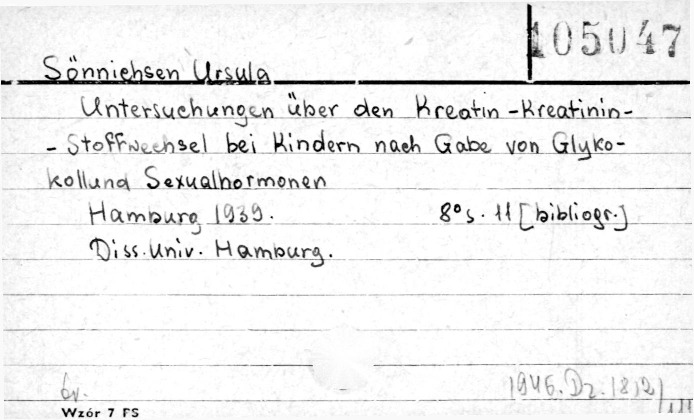 105047
Sönnichsen Ursula
Untersuchungen über den Kreatin-Kreatinin-
-Stoffwechsel bei Kindern nach Gabe von Glyko-
kollund Sexualhormonen
Hamburg 1939. 8° s. 11 [bibliogr.]
Diss. Univ. Hamburg.
1946. Dz. 1812/
Wzór 7 FS